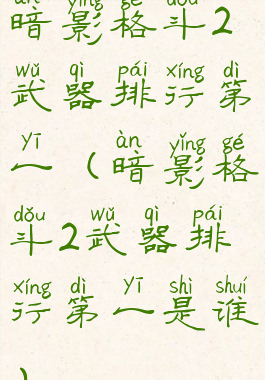 àn yǐng gé dòu
暗影格斗2
wǔ qì pái xíng dì
武器排行第
yī àn yǐng gé
一（暗影格
dǒu wǔ qì pái
斗2武器排
xíng dì yī shì shuí
行第一是谁
）